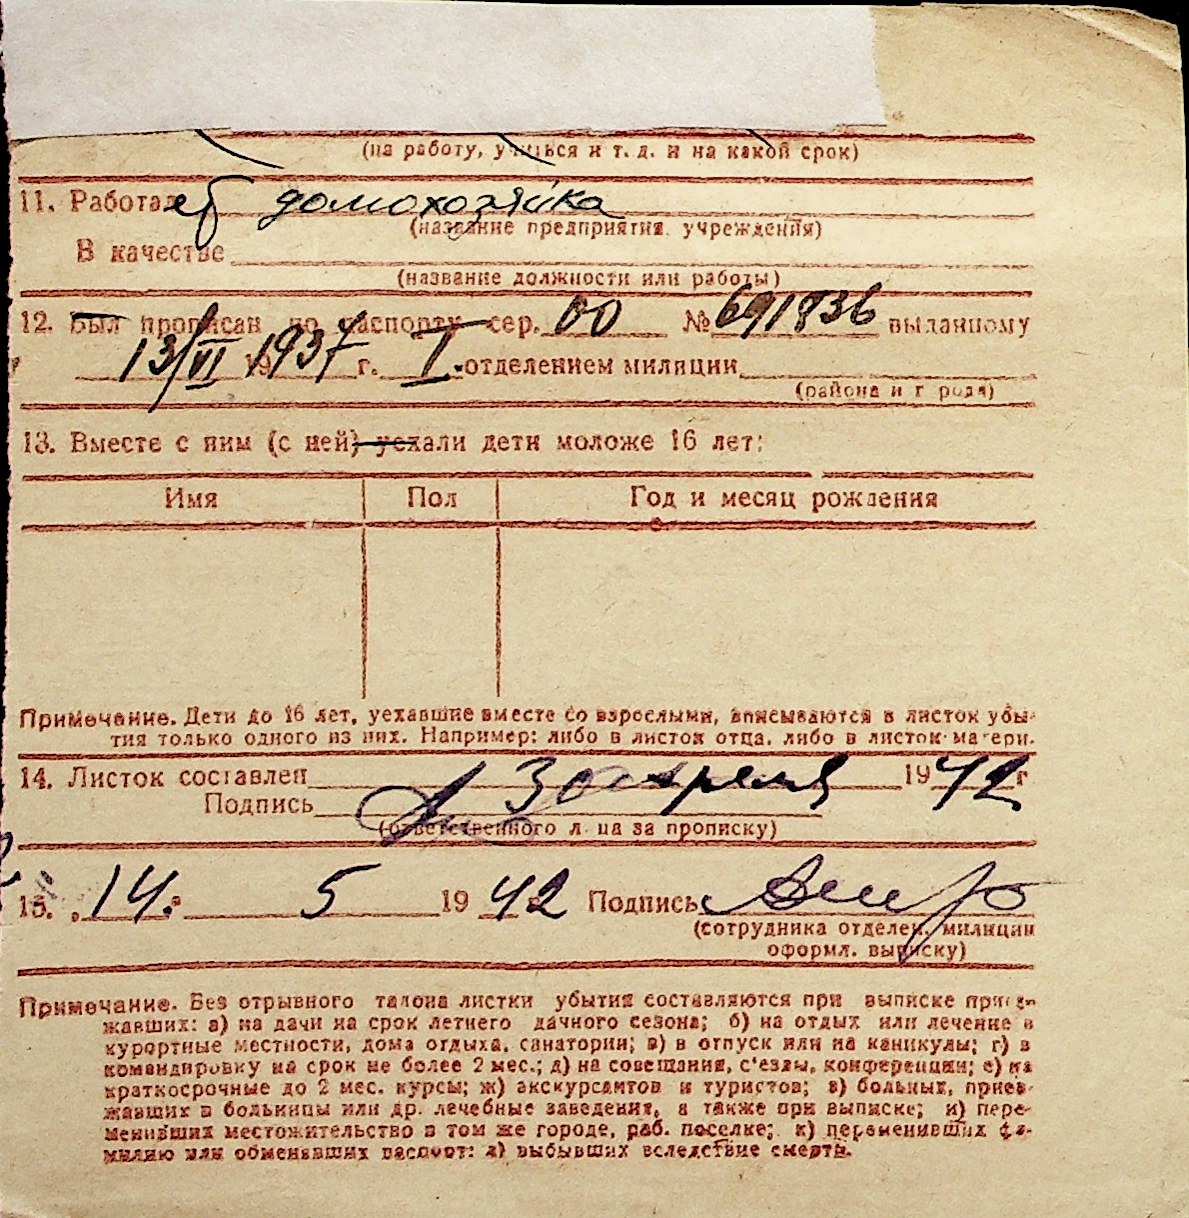 (на работу, учиться и т. д. и на какой срок)
11. Работает домохозяйка
(название предприятия, учреждения)
В качестве
(название должности или работы)
12. Был прописан по паспорту сер. 00 № 691836 выданному
13/VI 1937 г. I отделением милиции
(района и города)
13. Вместе с ним (с ней) уехали дети моложе 16 лет:
Имя Пол Год и месяц рождения
Примечание. Дети до 16 лет, уехавшие вместе со взрослыми, вписываются в листок убы-
тия только одного из них. Например: либо в листок отца, либо в листок матери.
14. Листок составлен 30 апреля 1942 г
Подпись
(ответственного лица за прописку)
15. 14. 5 1942 Подпись
(сотрудника отделен. милиции
оформл. выписку)
Примечание. Без отрывного талона листки убытия составляются при выписке приез-
жавших: а) на дачи на срок летнего дачного сезона; б) на отдых или лечение в
курортные местности, дома отдыха, санатории; в) в отпуск или на каникулы; г) в
командировку на срок не более 2 мес.; д) на совещания, с'езды, конференции; е) на
краткосрочные до 2 мес. курсы; ж) экскурсантов и туристов; з) больных, приез-
жавших в больницы или др. лечебные заведения, а также при выписке; и) пере-
менивших местожительство в том же городе, раб. поселке; к) переменивших фа-
милию или обменявших паспорт; л) выбывших вследствие смерти.